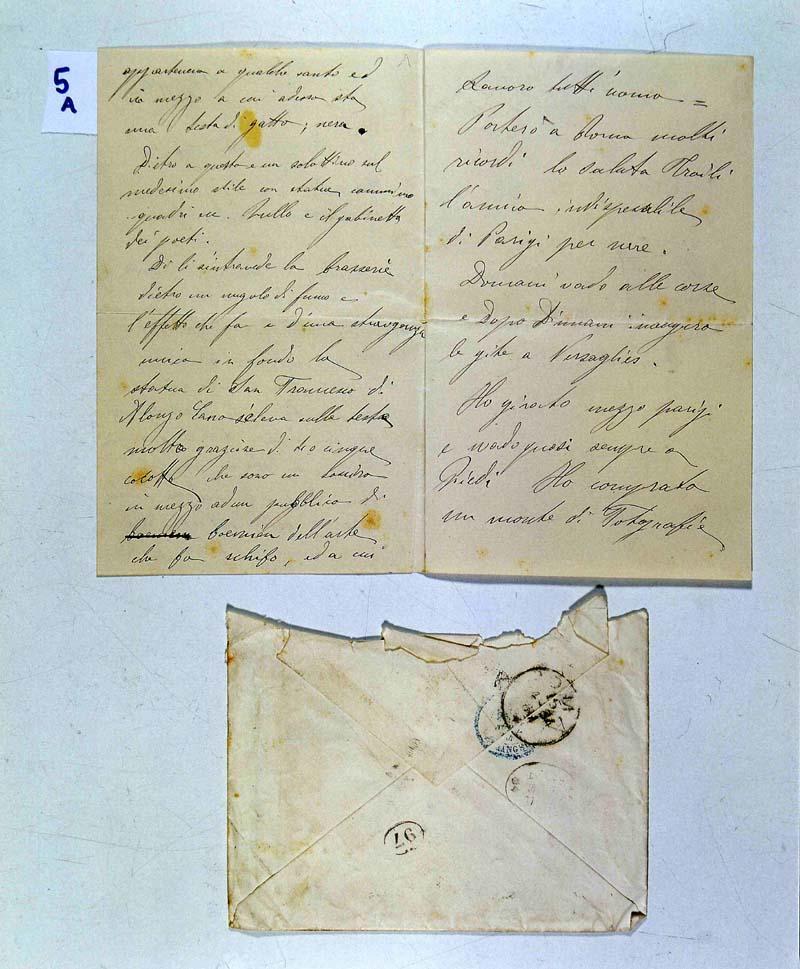 5
A
appartenuta a qualche santo ed
in mezzo a cui adesso sta
una testa di gatto; nera.
Dietro a questo e un salottino sul
medesimo stile con statue cammino
quadri ec. Sullo e il gabinetto
dei poeti.
Di li s'intravede la brasserie
dietro un nugolo di fumo e
l'effetto che fa e d'una stravaganza
unica in fondo la
statua di San Francesco di
Alonzo Cano seleva sulle teste
molto graziose di 4 o cinque
cocotte che sono un
in mezzo ad un pubblico di
boemien dell'arte
che fa schifo, ed a cui
Lavoro tutti uomo =
Porterò a Roma molti
ricordi lo saluta
l'amico indispensabile
di Parigi per me.
Domani vado alle corse
e Dopo Dimani inauguro
le gite a Versaglies.
Ho girato mezzo parigi
e vado quasi sempre a
Piedi Ho comprato
un monte di Fotografie
ROMA
97